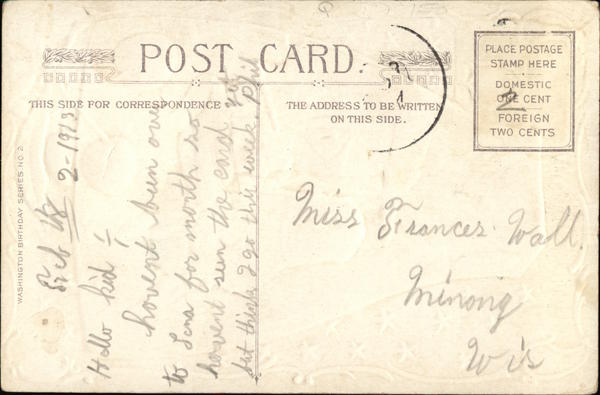 POST CARD.
THIS SIDE FOR CORRESPONDENCE
THE ADDRESS TO BE WRITTEN
ON THIS SIDE.
PLACE POSTAGE
STAMP HERE
DOMESTIC
ONE CENT
FOREIGN
TWO CENTS
2
WASHINGTON BIRTHDAY SERIES NO. 2
Feb 18
2-1913
Hello kid
havent been over
to Lena for month so
havent seen the card yet
but think I go this week. Phil
Miss Frances Wall.
Minong
Wis